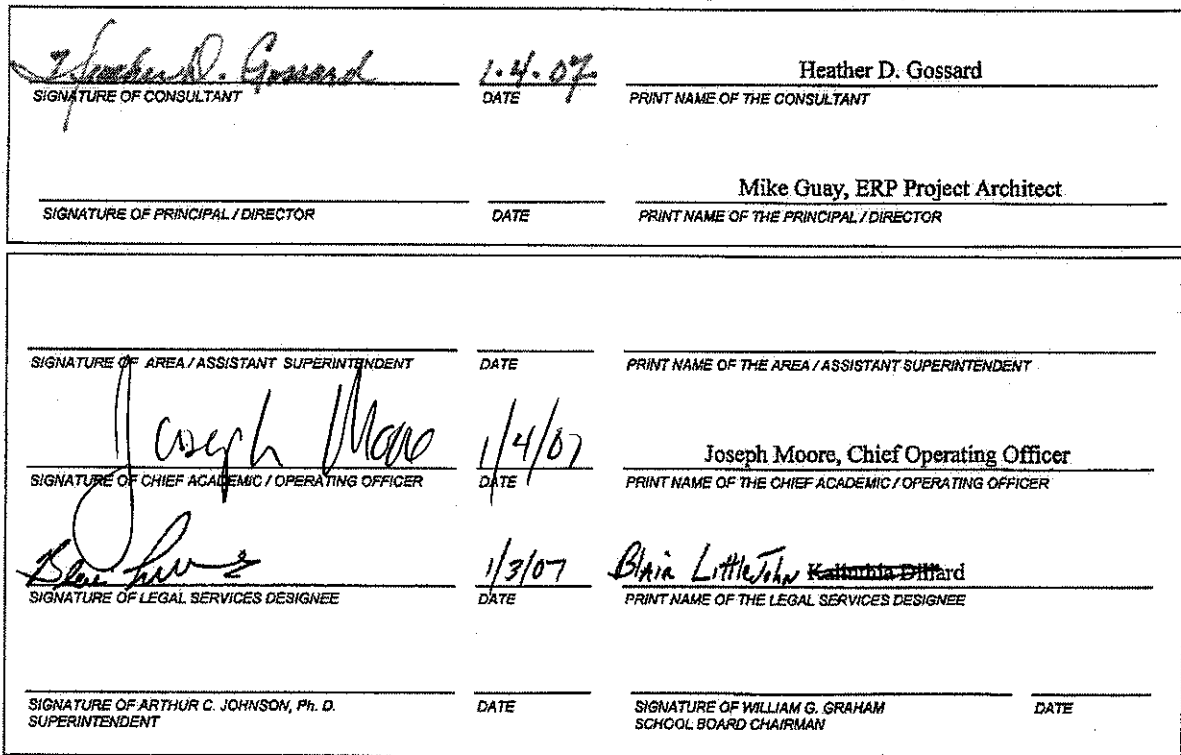 Heather D. Gossard 1.4.07 Heather D. Gossard
SIGNATURE OF CONSULTANT DATE PRINT NAME OF THE CONSULTANT
Mike Guay, ERP Project Architect
SIGNATURE OF PRINCIPAL / DIRECTOR DATE PRINT NAME OF THE PRINCIPAL / DIRECTOR
SIGNATURE OF AREA / ASSISTANT SUPERINTENDENT DATE PRINT NAME OF THE AREA / ASSISTANT SUPERINTENDENT
Joseph Moore 1/4/07 Joseph Moore, Chief Operating Officer
SIGNATURE OF CHIEF ACADEMIC / OPERATING OFFICER DATE PRINT NAME OF THE CHIEF ACADEMIC / OPERATING OFFICER
1/3/07 Blair LittleJohn Dillard
SIGNATURE OF LEGAL SERVICES DESIGNEE DATE PRINT NAME OF THE LEGAL SERVICES DESIGNEE
SIGNATURE OF ARTHUR C. JOHNSON, Ph. D. DATE SIGNATURE OF WILLIAM G. GRAHAM DATE
SUPERINTENDENT SCHOOL BOARD CHAIRMAN